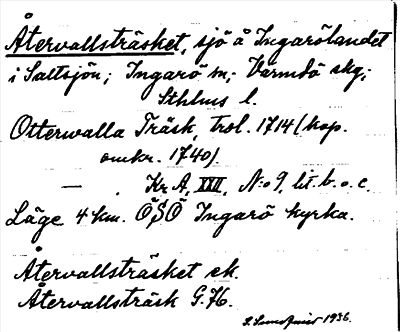 Återvallsträsket, sjö å Ingarölandet
i Saltsjön; Ingarö sn; Värmdö skg;
Sthlms l.
Otterwalla Träsk, trol. 1714 (kop.
omkr. 1740).
— . Kr A, XVII, N:o 9, lit. b. o. c.
Läge 4 km. ÖSÖ Ingarö kyrka.
Återvallsträsket ek.
Återvallsträsk G.K.
1936.